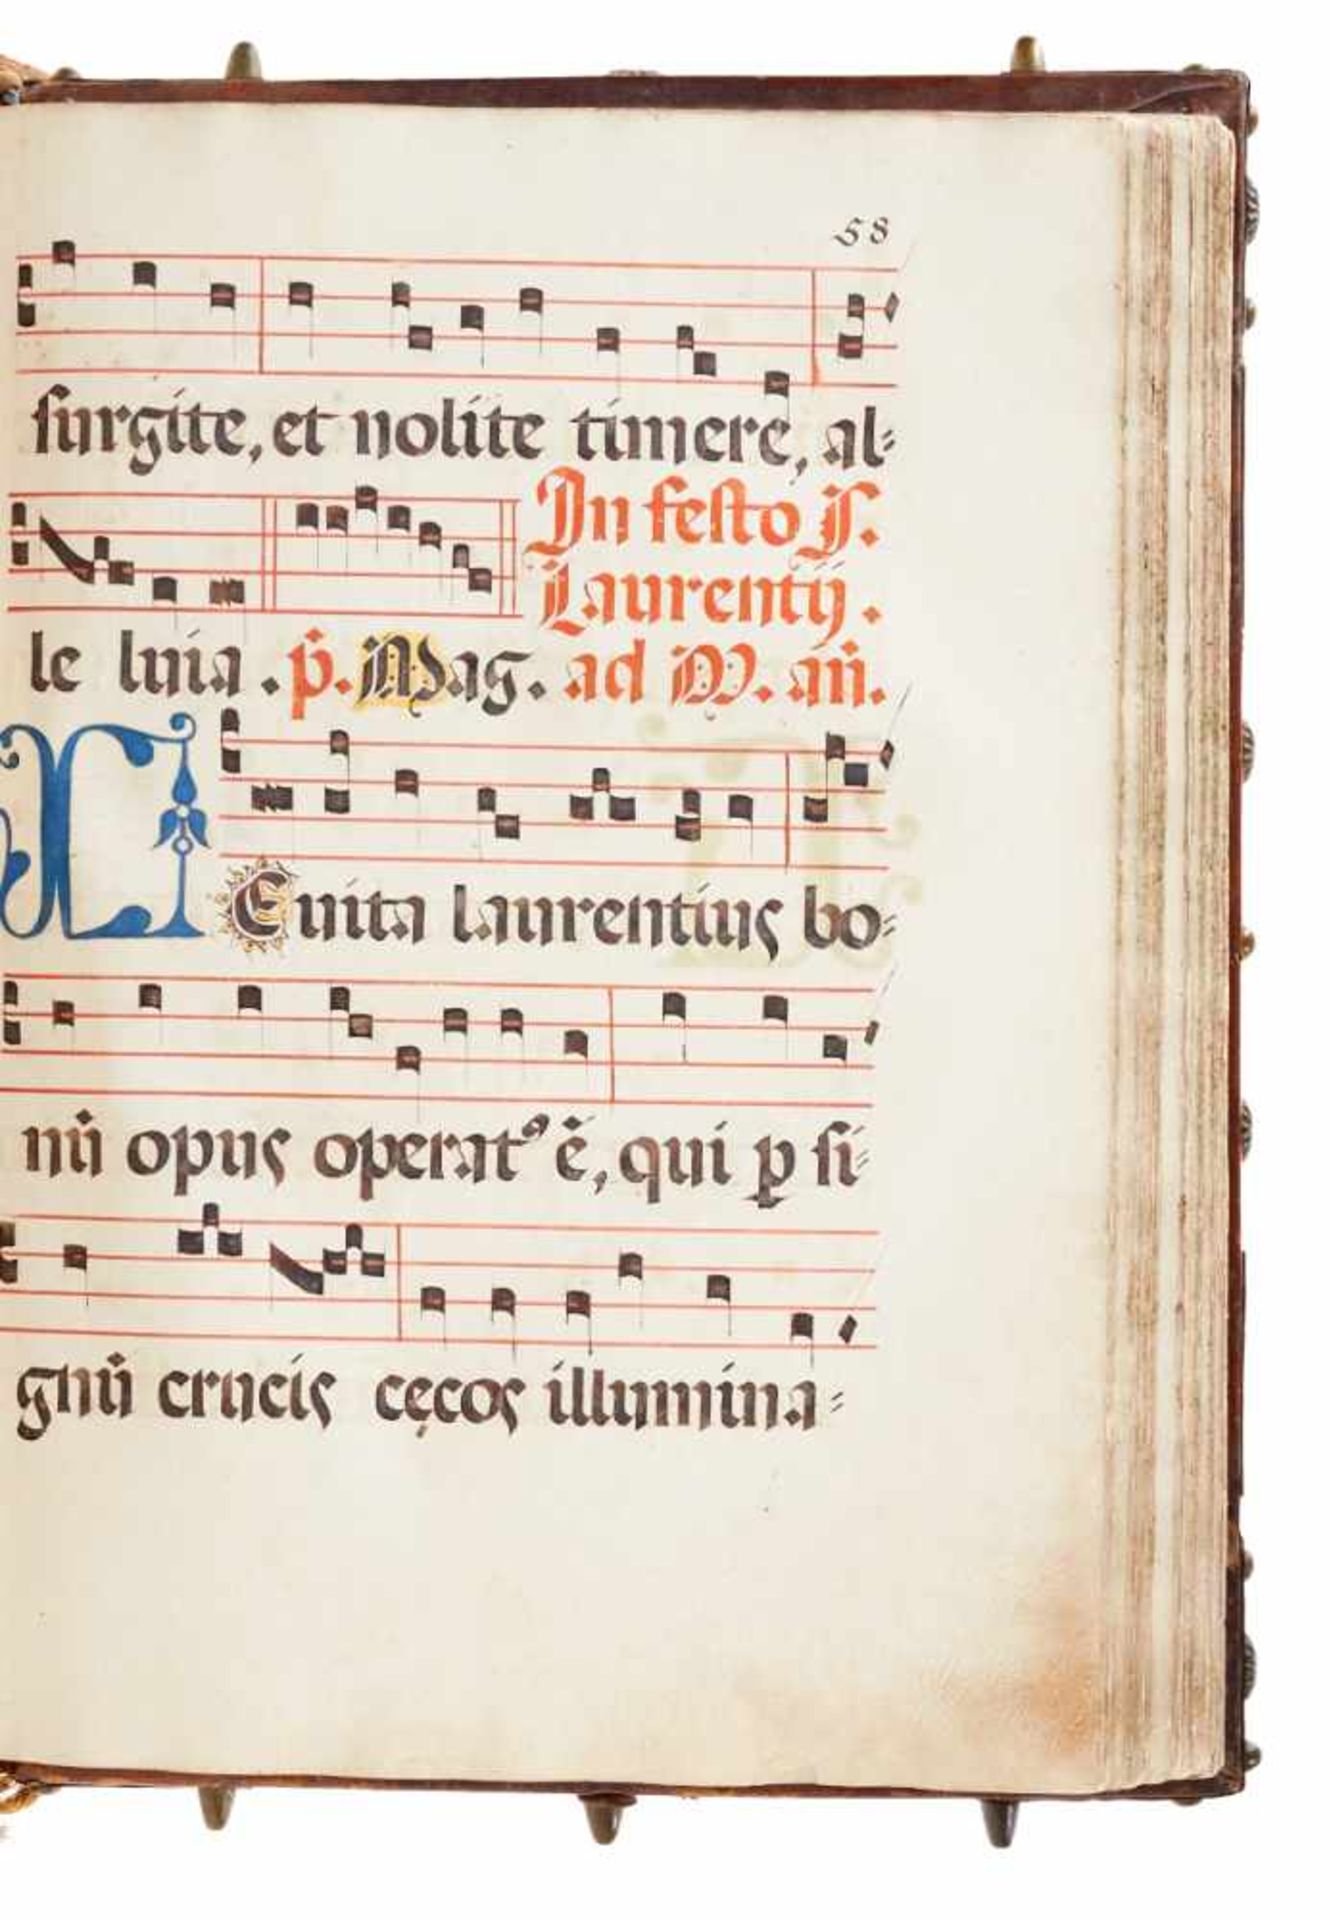 58
surgite, et nolite timere, al=
In festo S.
Laurentij.
le luia. p̄. Mag. ad M. an̄.
LEuita laurentius bo=
nū opus operatꝰ ē, qui ꝑ si=
gnū crucis cęcos illumina=